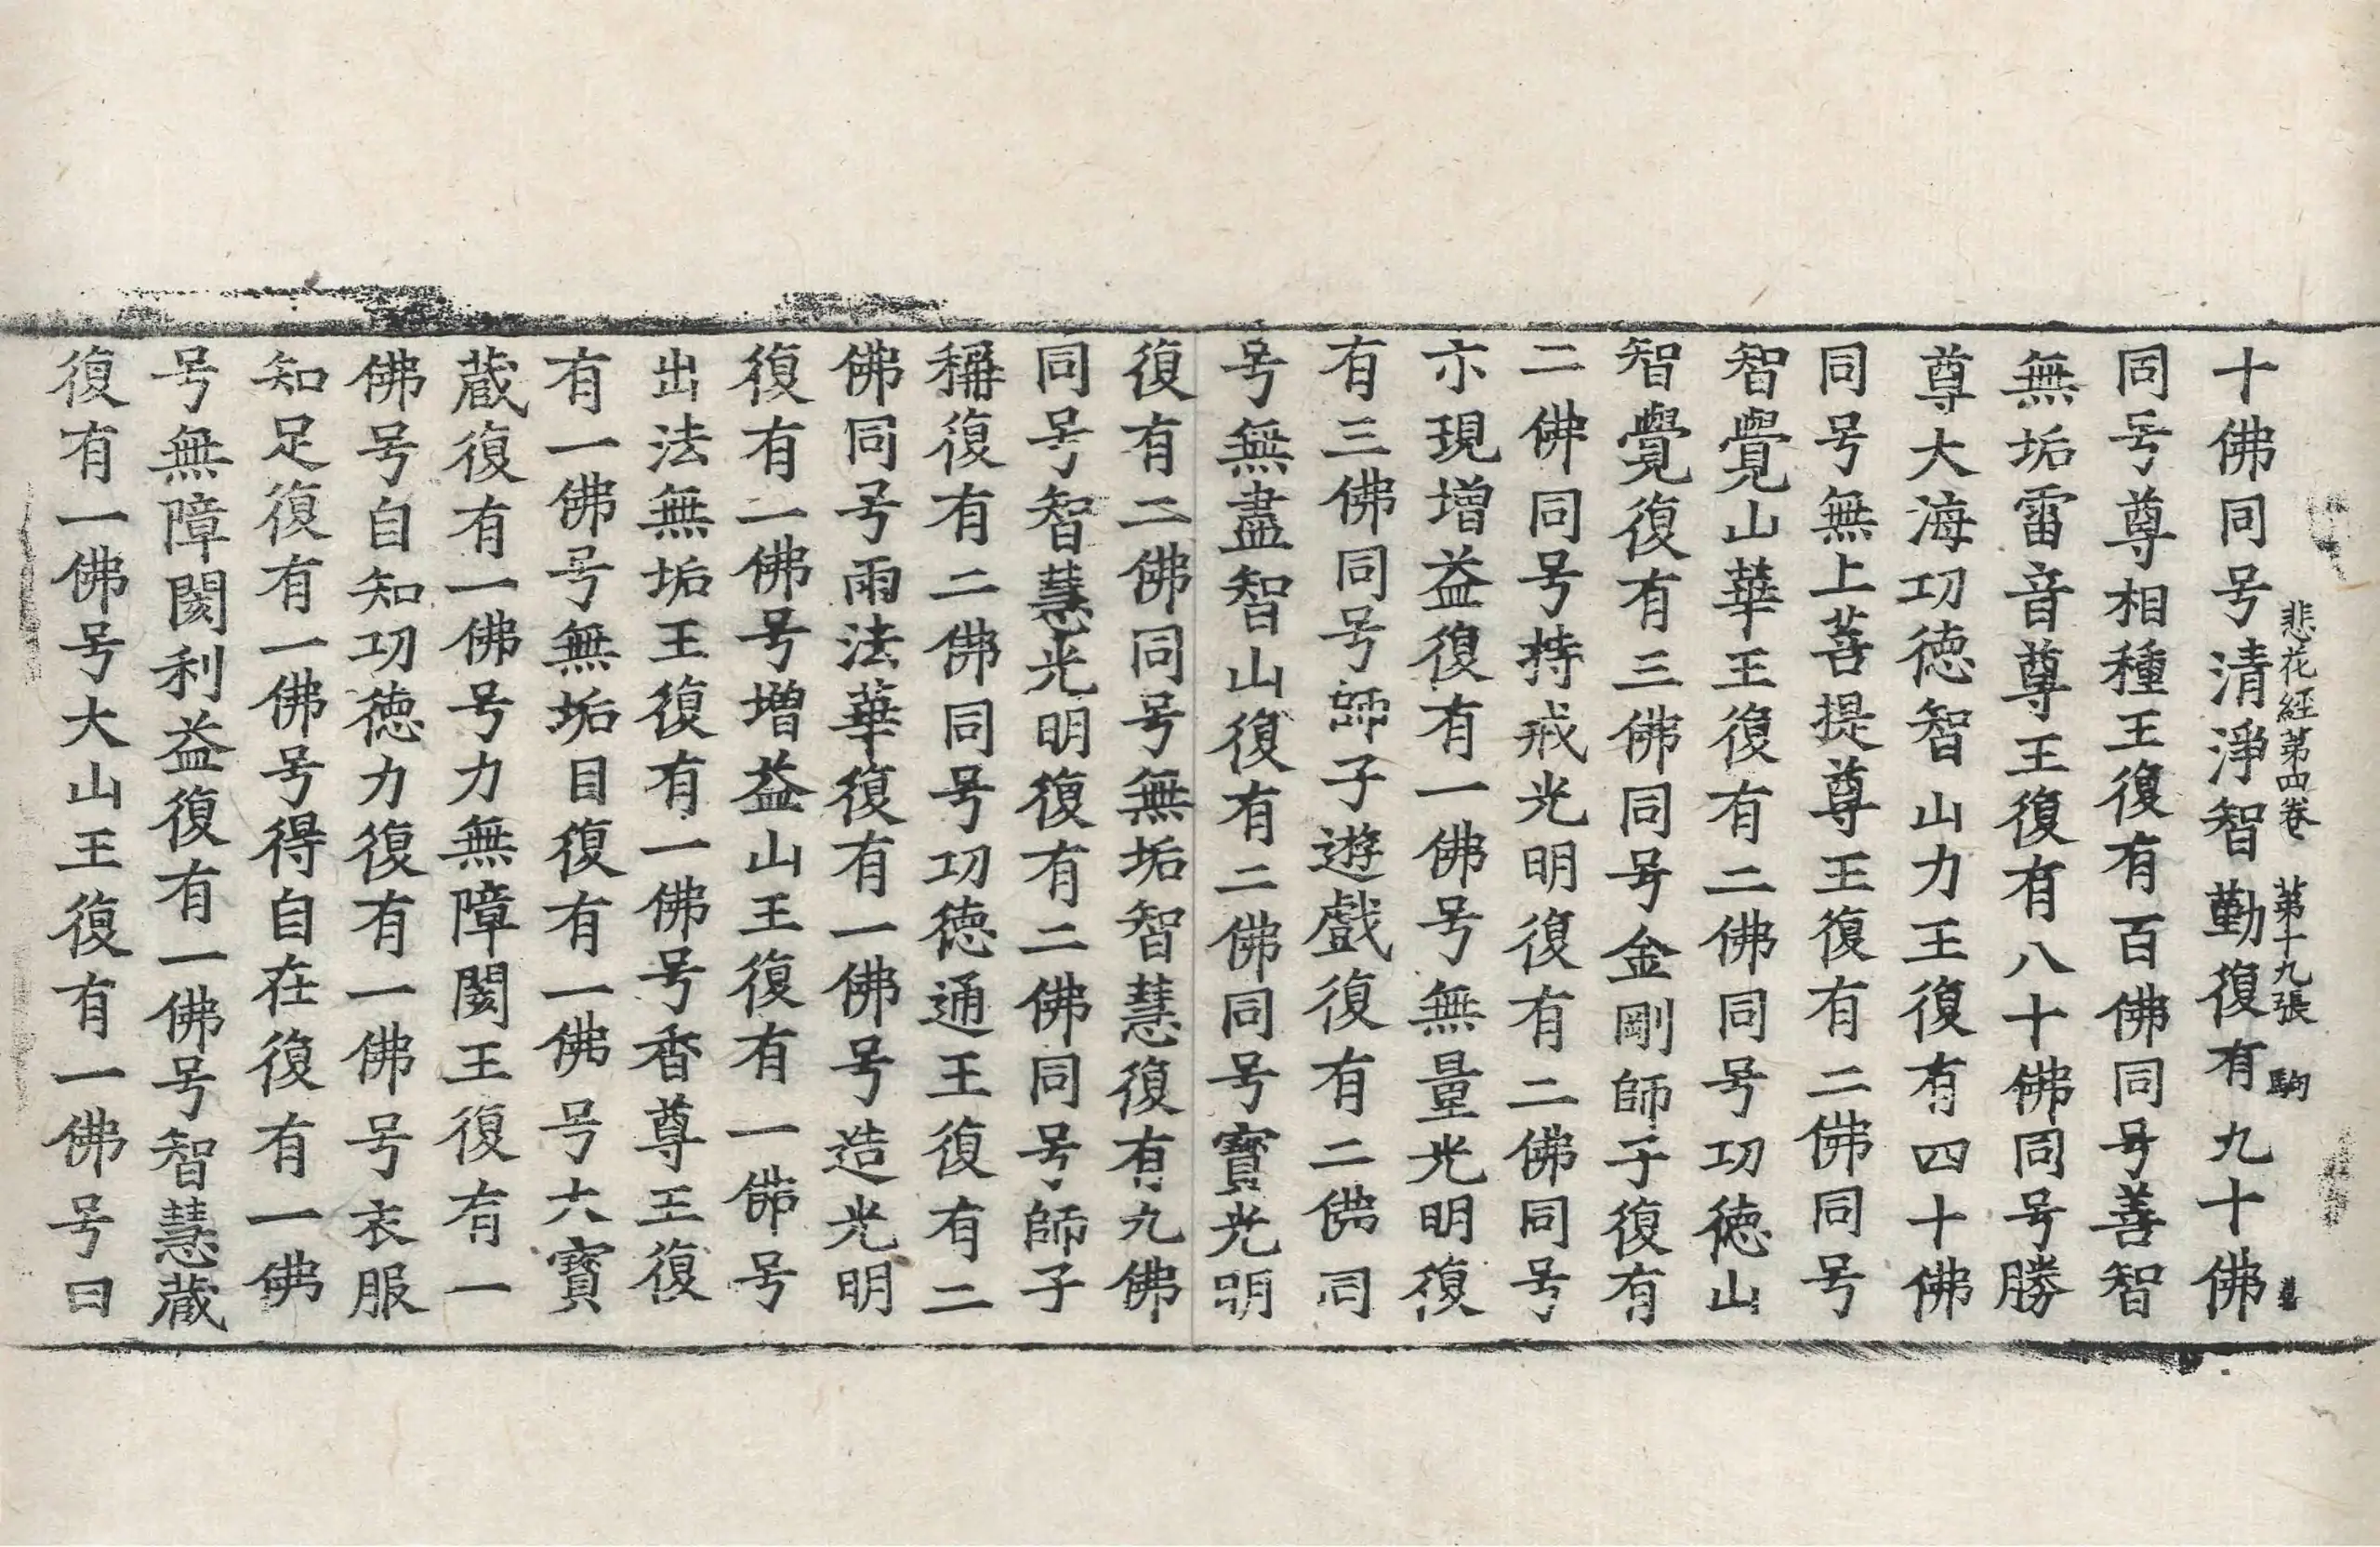 悲花経苐四卷 苐十九張 駒
十佛同号清淨智勤復有九十佛
同号尊相種王復有百佛同号善智
無垢雷音尊王復有八十佛同号勝
尊大海功徳智山力王復有四十佛
同号無上菩提尊王復有二佛同号
智覺山華王復有二佛同号功徳山
智覺復有三佛同号金剛師子復有
二佛同号持戒光明復有二佛同号
示現增益復有一佛号無量光明復
有三佛同号師子遊戲復有二佛同
号無盡智山復有二佛同号寳光明
復有二佛同号無垢智慧復有九佛
同号智慧光明復有二佛同号師子
稱復有二佛同号功徳通王復有二
佛同号雨法華復有一佛号造光明
復有一佛号增益山王復有一佛号
出法無垢王復有一佛号香尊王復
有一佛号無垢目復有一佛号大寳
蔵復有一佛号力無障閡王復有一
佛号自知功徳力復有一佛号衣服
知足復有一佛号得自在復有一佛
号無障閡利益復有一佛号智慧蔵
復有一佛号大山王復有一佛号曰